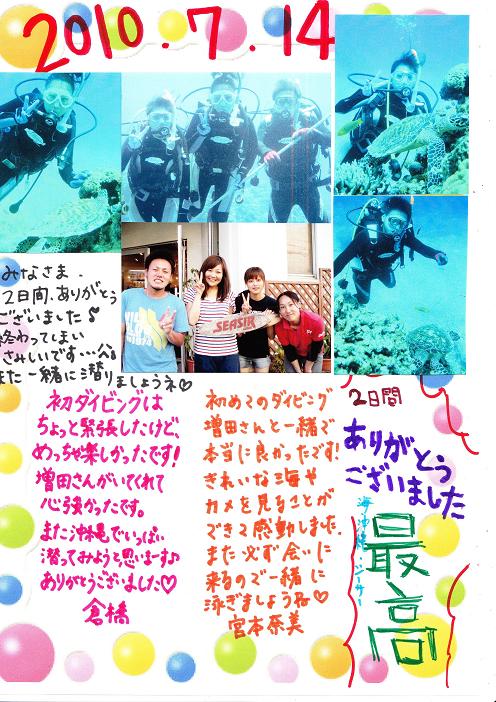 2010.7.14
みなさま、
2日間、ありがとう
ございました♪
終わってしまい
さみしいです…
また一緒に潜りましょうネ♡
SEASIR
初ダイビングは
ちょっと緊張したけど、
めっちゃ楽しかったです!
増田さんがいてくれて
心強かったです。
また沖縄でいっぱい
潜ってみようと思います♪
ありがとうございました♡
倉橋
初めてのダイビング
増田さんと一緒で
本当に良かったです!
きれいな海や
カメを見ることが
できて感動しました。
また必ず会いに
来るので一緒に
泳ぎましょうね♡
宮本奈美
2日間
ありがとう
ございました
最高